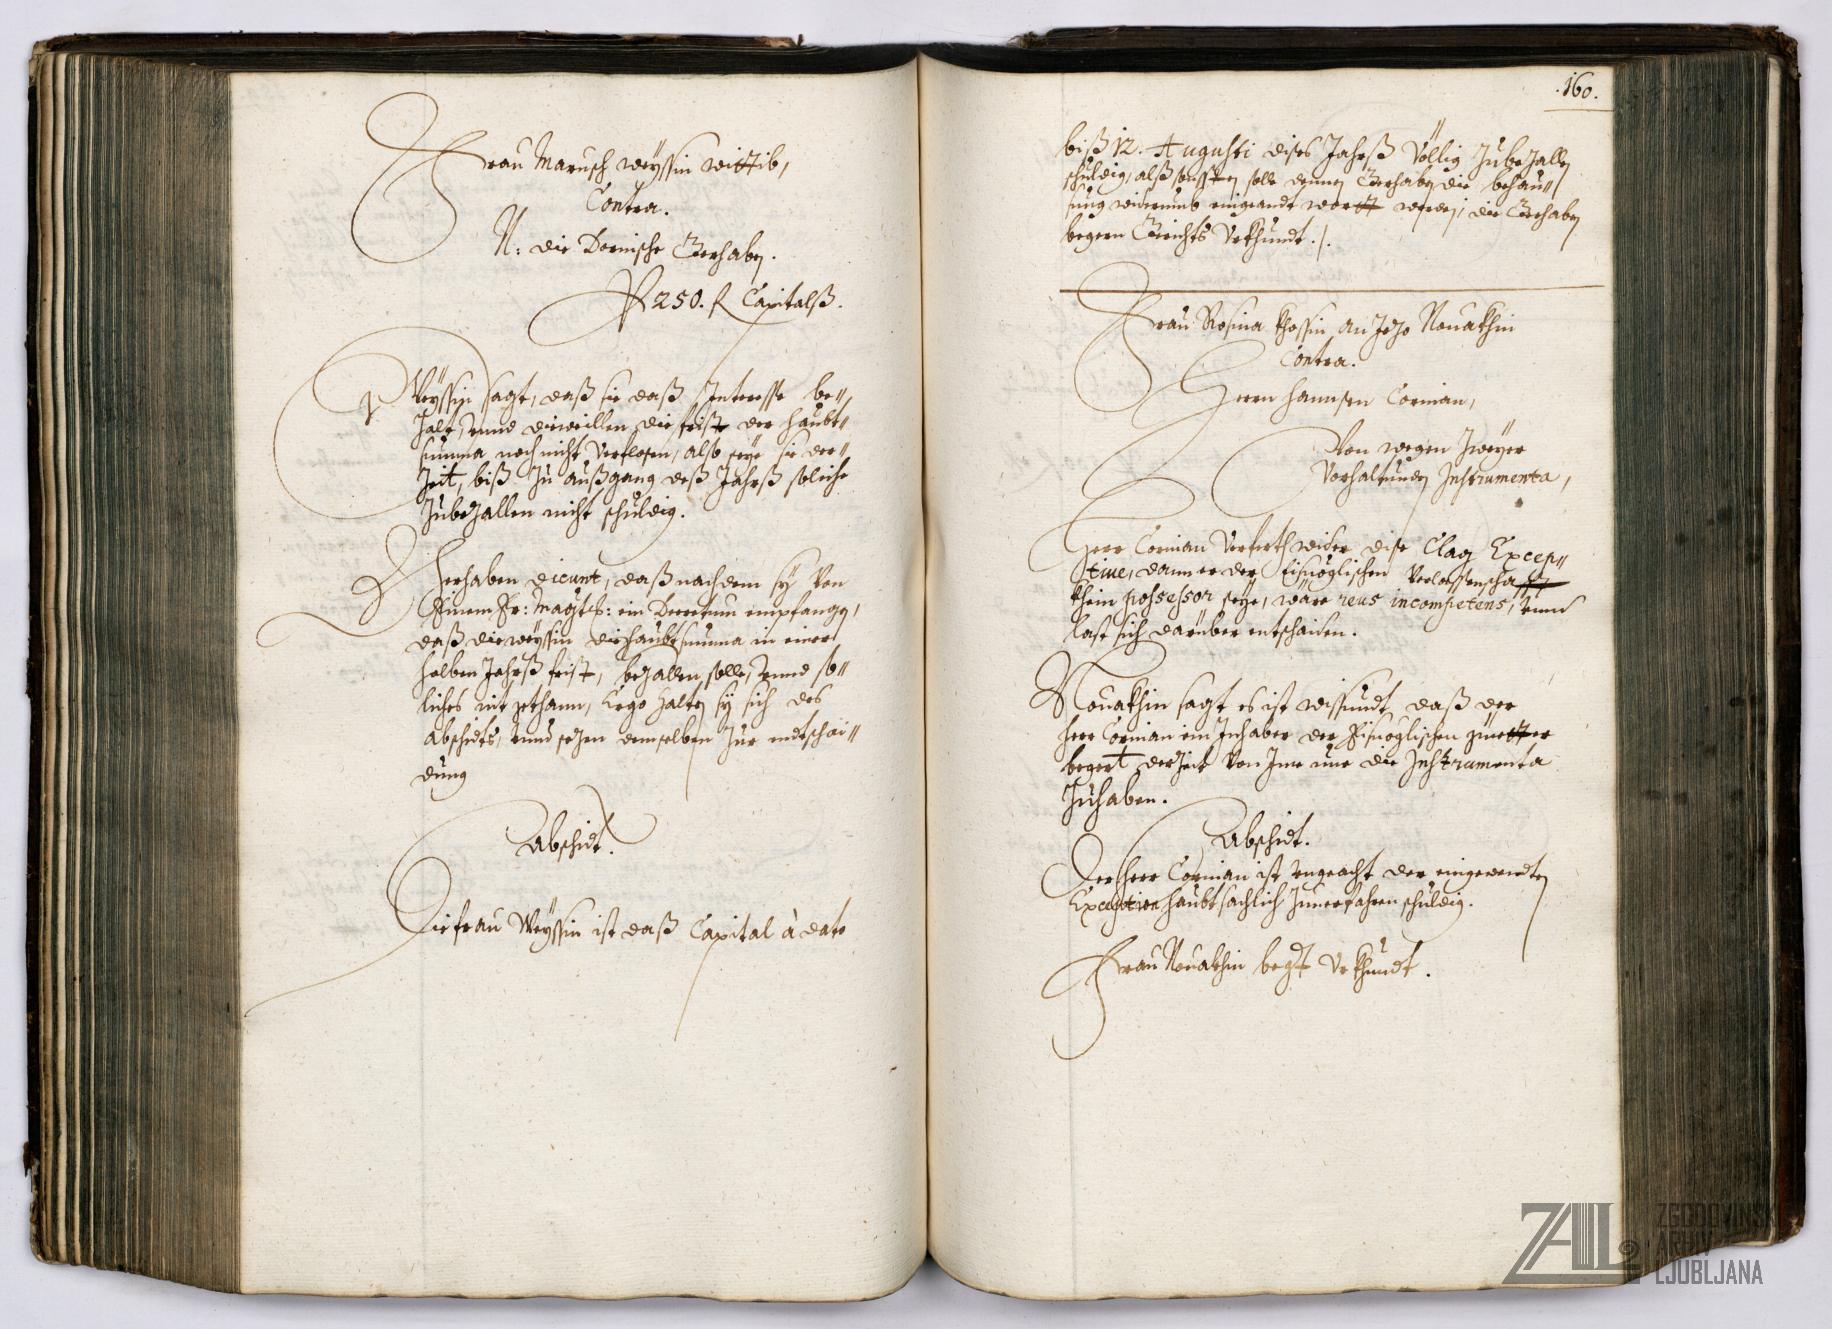 Frau Marusch Weÿssin wittib,
Contra.
N: die Dornische Gerhaben.
P 250. f Capitalß.
Weÿssin sagt, daß sie daß Interesse be=
zalt, vnnd dieweillen die frist der haubt=
summa noch nicht verflosen, also seÿe sie der=
Zeit, biß zu außgang deß Jahrß solche
Zubezallen nicht schuldig.
Gerhaben dicunt, daß nachdem sÿ von
Einem Er: Magist: ein Decretum empfangen,
daß die weÿssin die haubtsumma in einer
halben Jahrß frist, bezallen solle, vnnd so=
liches nit gethann, Ergo halten sÿ sich des
abschidts, vnnd sezen demselben zur endtschai=
dung
Abschidt.
Die frau Weÿssin ist daß Capital à dato
.160.
biß 12. Augusti dises Jahrß Völlig Zubezallen
schuldig, alß sonsten solle denen Gerhaben die behau=
sung widerumb eingeandtwortt werden, die Gerhaben
begern Gerichts Vrkhundt ./.
Frau Rosina khossin an Jezo Nouakhin
Contra.
Herrn Hannsen Corman,
Von wegen Zweyer
Vorhaltunden Instrumenta,
Herr Corman Verfürth wider dise Clag Excep=
tiue, dann er der Eisnöglischen Verlassenschafft
khein possessor seÿe, wäre reus incompetens, vnnd
last sich darüber entschaiden.
Nouakhin sagt es ist wissundt, daß der
herr Corman ein Inhaber der Eisnöglischen güetter
begert derzeit von Ime nur die Instrumenta
Zuhaben.
Abschidt.
Der herr Corman ist vngeacht der eingewendten
Exception haubtsachlich Zuuerfahren schuldig.
Frau Nouakhin begert Vrkhundt.
ZAL
ZGODOVINSKI
ARHIV
LJUBLJANA